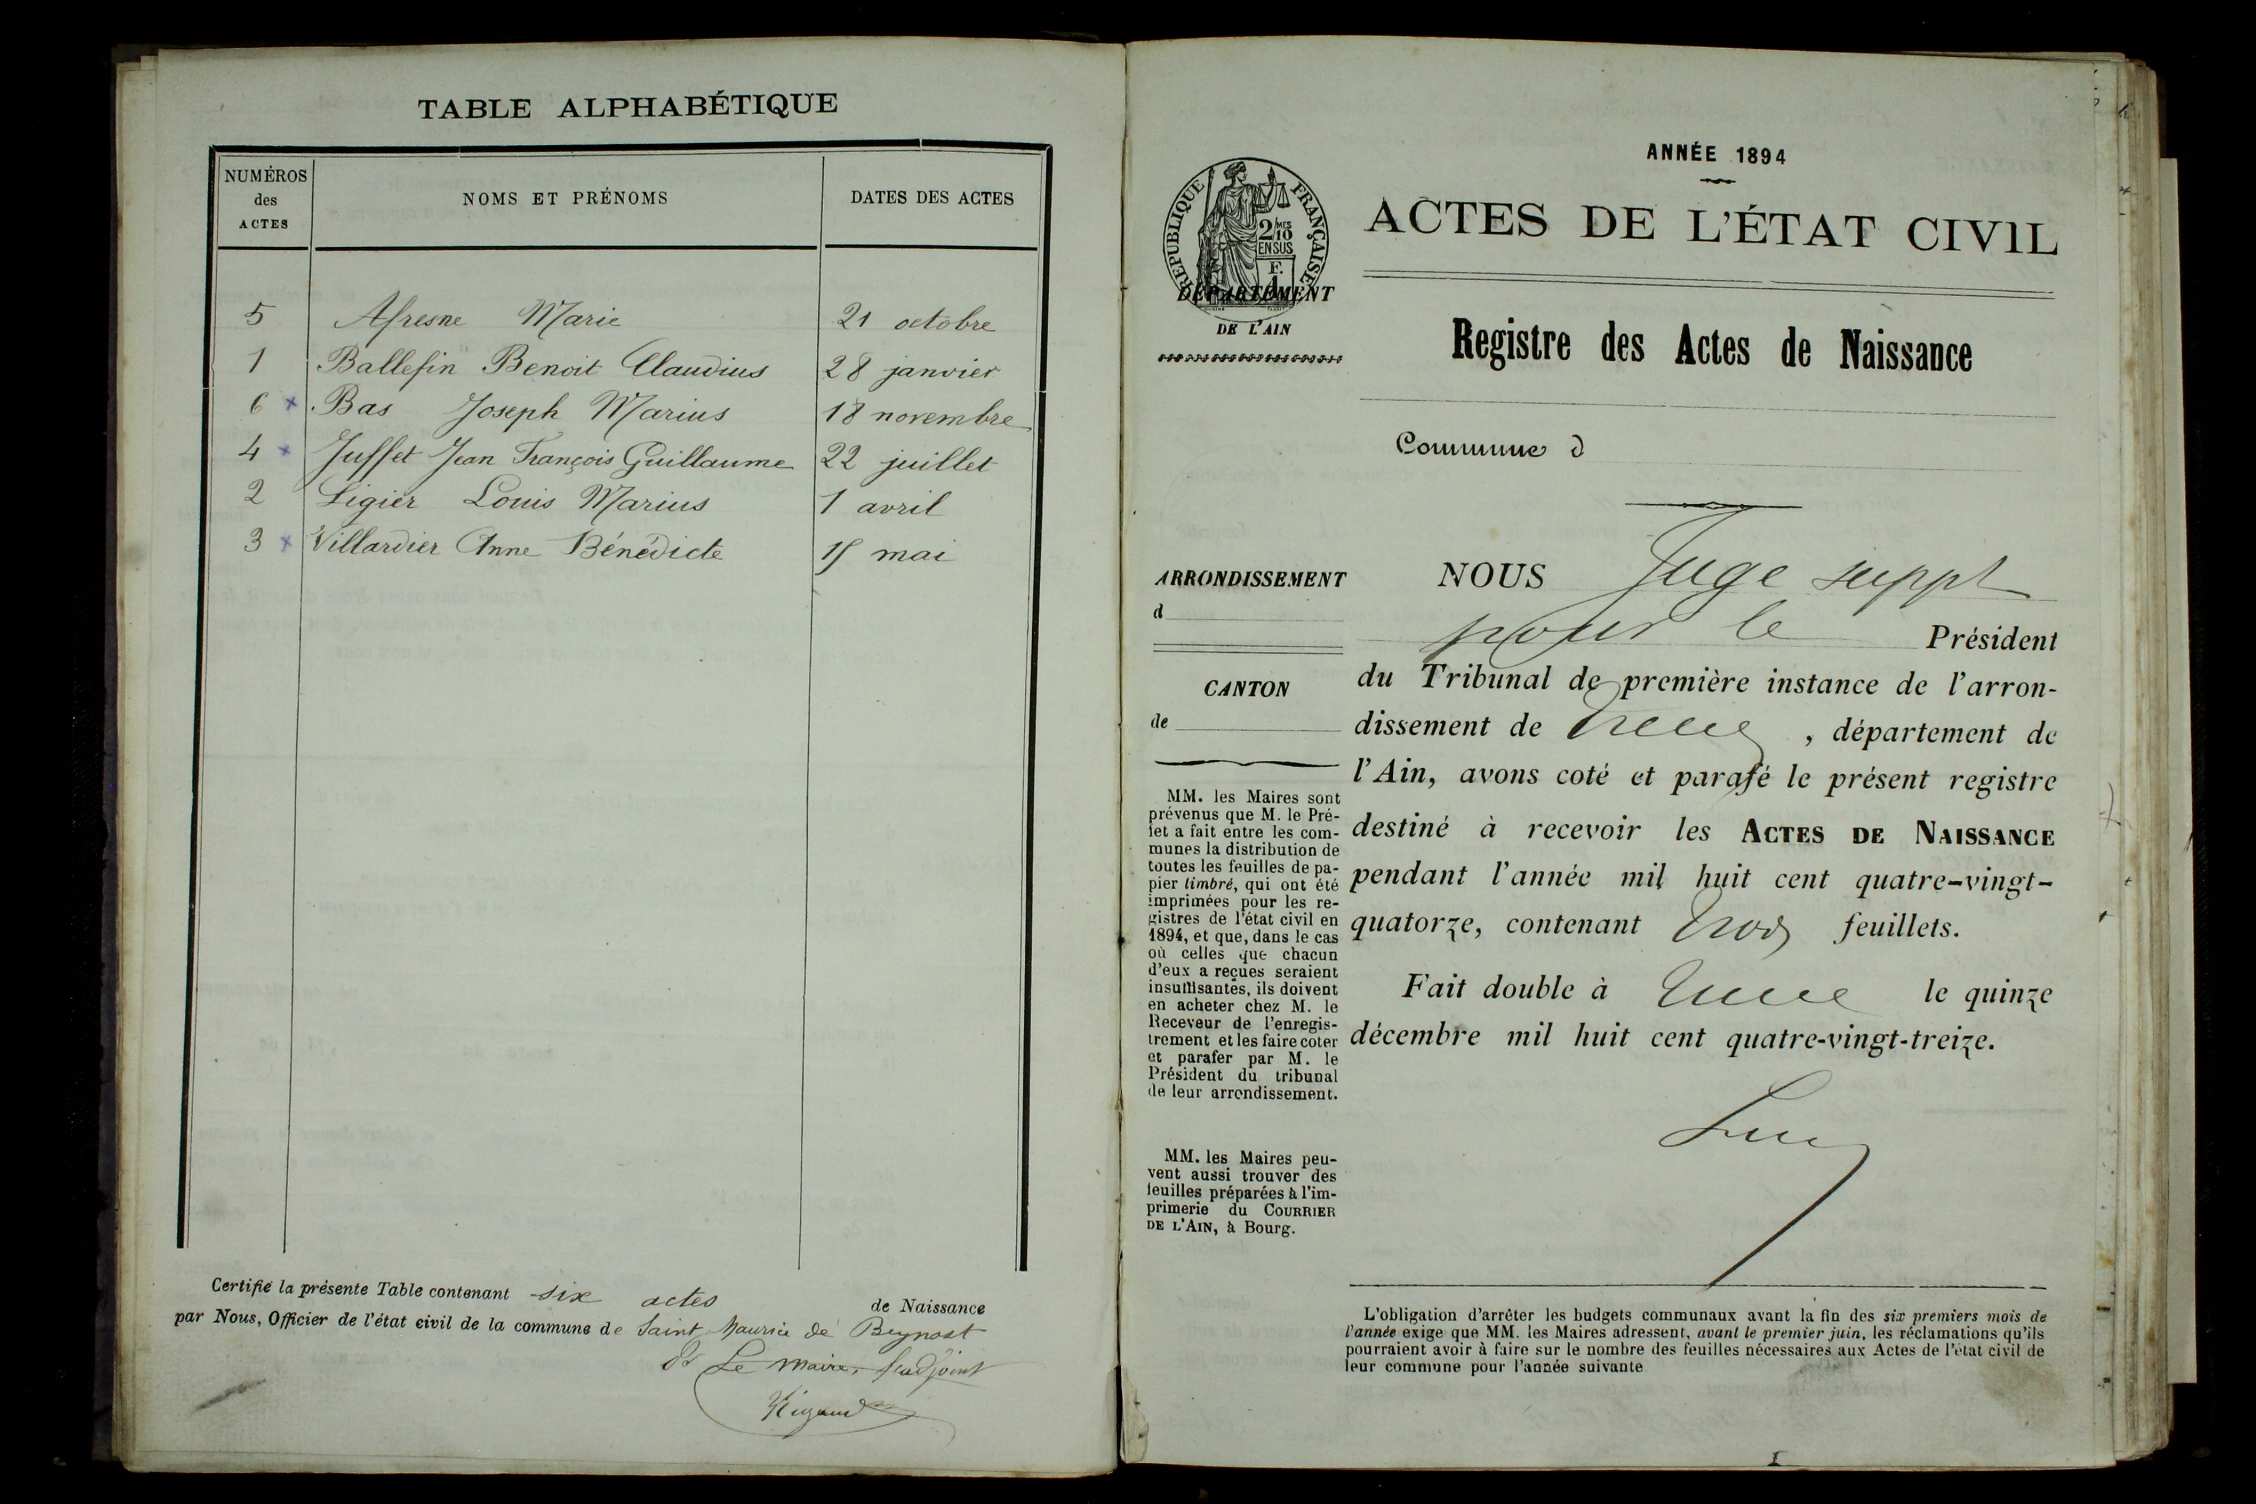 TABLE ALPHABÉTIQUE
NUMÉROS des ACTES
NOMS ET PRÉNOMS
DATES DES ACTES
5 Afresne Marie 21 octobre
1 Ballefin Benoit Claudius 28 janvier
6 x Bas Joseph Marius 18 novembre
4 x Juffet Jean François Guillaume 22 juillet
2 Ligier Louis Marius 1 avril
3 x Villardier Anne Bénédicte 15 mai
Certifié la présente Table contenant six actes de Naissance
par Nous, Officier de l'état civil de la commune de Saint Maurice de Beynost
Le Maire, l'adjoint
Rigaud
ANNÉE 1894
RÉPUBLIQUE FRANÇAISE
2/10MES
EN SUS
F.
DÉPARTEMENT
DE L'AIN
ACTES DE L'ÉTAT CIVIL
Registre des Actes de Naissance
Commune d
ARRONDISSEMENT
d
CANTON
de
MM. les Maires sont
prévenus que M. le Pré-
fet a fait entre les com-
munes la distribution de
toutes les feuilles de pa-
pier timbré, qui ont été
imprimées pour les re-
gistres de l'état civil en
1894, et que, dans le cas
où celles que chacun
d'eux a reçues seraient
insuffisantes, ils doivent
en acheter chez M. le
Receveur de l'enregis-
trement et les faire coter
et parafer par M. le
Président du tribunal
de leur arrondissement.
MM. les Maires peu-
vent aussi trouver des
feuilles préparées à l'im-
primerie du COURRIER
DE L'AIN, à Bourg.
NOUS Juge suppt
pour le Président
du Tribunal de première instance de l'arron-
dissement de Trévoux, département de
l'Ain, avons coté et parafé le présent registre
destiné à recevoir les ACTES DE NAISSANCE
pendant l'année mil huit cent quatre-vingt-
quatorze, contenant trois feuillets.
Fait double à Trévoux le quinze
décembre mil huit cent quatre-vingt-treize.
L'obligation d'arrêter les budgets communaux avant la fin des six premiers mois de
l'année exige que MM. les Maires adressent, avant le premier juin, les réclamations qu'ils
pourraient avoir à faire sur le nombre des feuilles nécessaires aux Actes de l'état civil de
leur commune pour l'année suivante